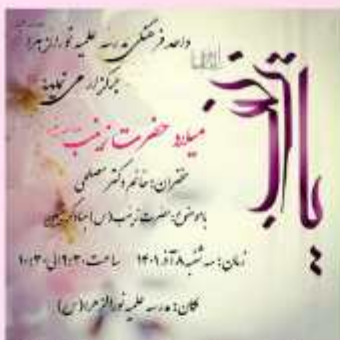 واحد فرهنگی مدرسه علمیه نورالزهرا
برگزار می نماید
میلاد حضرت زینب
سخنران: خانم دکتر مصلحی
باموضوع: حضرت زینب (س)
زمان: سه شنبه ۸ آذر ۱۴۰۱ ساعت ۹:۳۰ الی ۱۰:۳۰
مکان: مدرسه علمیه نورالزهرا (س)